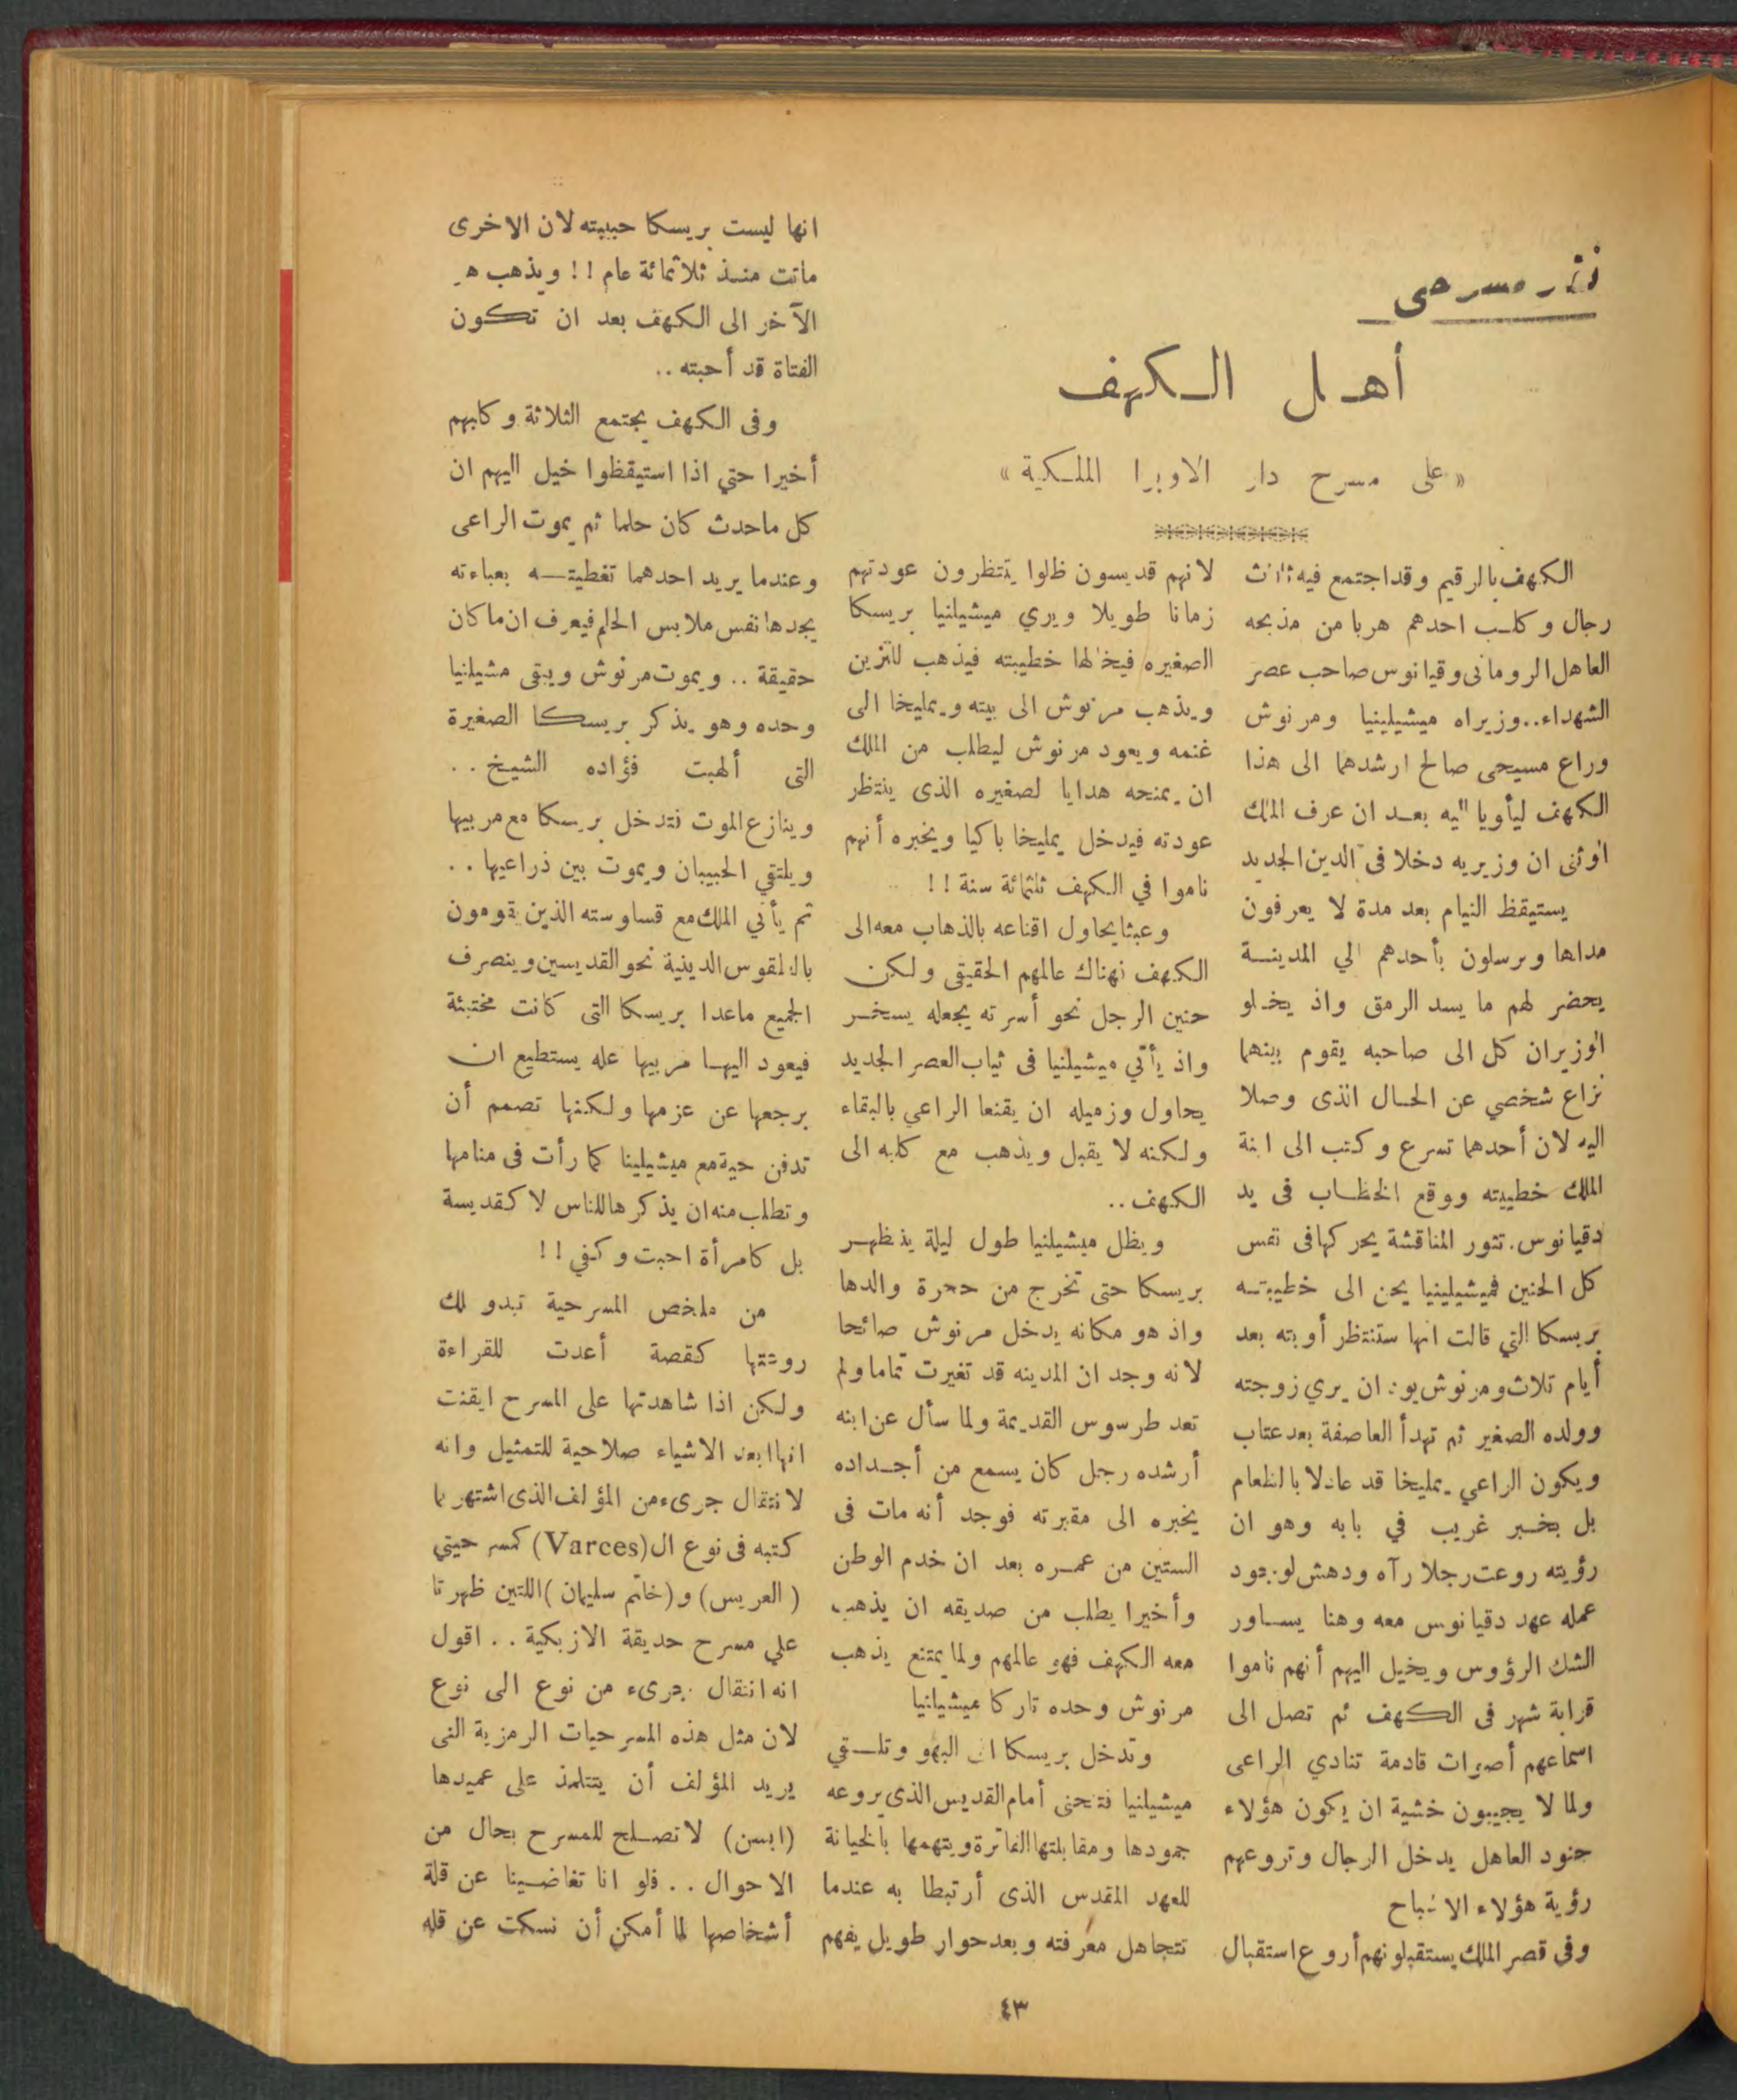 نثر مسرحى
أهل الكهف
«على مسرح دار الاوبرا الملكية»
الكهف بالرقيم وقد اجتمع فيه ثلاث
رجال وكلب احدهم هربا من مذبحه
العاهل الرومانى دقيانوس صاحب عصر
الشهداء..وزيراه ميشيلينيا ومرنوش
وراع مسيحى صالح ارشدهما الى هذا
الكهف ليأويا اليه بعد ان عرف الملك
الوثنى ان وزيريه دخلا فى الدين الجديد
يستيقظ النيام بعد مدة لا يعرفون
مداها ويرسلون بأحدهم الي المدينة
يحضر لهم ما يسد الرمق واذ يخلو
الوزيران كل الى صاحبه يقوم بينهما
نزاع شخصي عن الحال الذى وصلا
اليه لان أحدهما تسرع وكتب الى ابنة
الملك خطيبته ووقع الخطاب فى يد
دقيانوس. تثور المناقشة يحركها فى نفس
كل الحنين فميشيلينيا يحن الى خطيبته
بريسكا التي قالت انها ستنتظر أوبته بعد
أيام ثلاث ومرنوش يود ان يري زوجته
وولده الصغير ثم تهدأ العاصفة بعد عتاب
ويكون الراعي يمليخا قد عاد لا بالطعام
بل بخبر غريب في بابه وهو ان
رؤيته روعت رجلا رآه ودهش لوجود
عمله عهد دقيانوس معه وهنا يساور
الشك الرؤوس ويخيل اليهم أنهم ناموا
قرابة شهر فى الكهف ثم تصل الى
اسماعهم أصوات قادمة تنادي الراعى
ولما لا يجيبون خشية ان يكون هؤلاء
جنود العاهل يدخل الرجال وتروعهم
رؤية هؤلاء الاشباح
وفى قصر الملك يستقبلونهم أروع استقبال
لانهم قديسون ظلوا ينتظرون عودتهم
زمانا طويلا ويري ميشيلنيا بريسكا
الصغيره فيخالها خطيبته فيذهب للتزين
ويذهب مرنوش الى بيته ويمليخا الى
غنمه ويعود مرنوش ليطلب من الملك
ان يمنحه هدايا لصغيره الذى ينتظر
عودته فيدخل يمليخا باكيا ويخبره أنهم
ناموا في الكهف ثلثمائة سنة !!
وعبثا يحاول اقناعه بالذهاب معه الى
الكهف نهناك عالمهم الحقيقى ولكن
حنين الرجل نحو أسرته يجعله يسخر
واذ يأتي ميشيلنيا فى ثياب العصر الجديد
يحاول وزميله ان يقنعا الراعي بالبقاء
ولكنه لا يقبل ويذهب مع كلبه الى
الكهف..
ويظل ميشيلنيا طول ليلة ينظهر
بريسكا حتى تخرج من حجرة والدها
واذ هو مكانه يدخل مرنوش صائحا
لانه وجد ان المدينه قد تغيرت تماما ولم
تعد طرسوس القديمة ولما سأل عن ابنه
أرشده رجل كان يسمع من أجداده
يخبره الى مقبرته فوجد أنه مات فى
الستين من عمره بعد ان خدم الوطن
وأخيرا يطلب من صديقه ان يذهب
معه الكهف فهو عالمهم ولما يمتنع يذهب
مرنوش وحده تاركا ميشيلنيا
وتدخل بريسكا الى البهو وتلتقي
ميشيلنيا فتحنى أمام القديس الذى يروعه
جمودها ومقابلتها الفاترة ويتهمها بالخيانة
للعهد المقدس الذى أرتبطا به عندما
تتجاهل معرفته وبعد حوار طويل يفهم
انها ليست بريسكا حبيبته لان الاخرى
ماتت منذ ثلاثمائة عام !! ويذهب هو
الآخر الى الكهف بعد ان تكون
الفتاة قد أحبته ..
وفى الكهف يجتمع الثلاثة وكلبهم
أخيرا حتي اذا استيقظوا خيل اليهم ان
كل ماحدث كان حلما ثم يموت الراعى
وعندما يريد احدهما تغطيته بعباءته
يجدها نفس ملابس الحلم فيعرف ان ما كان
حقيقة .. ويموت مرنوش ويبقى مشيلنيا
وحده وهو يذكر بريسكا الصغيرة
التى ألهبت فؤاده الشيخ ..
وينازع الموت فتدخل بريسكا مع مربيها
ويلتقي الحبيبان ويموت بين ذراعيها ..
ثم يأتي الملك مع قساوسته الذين يقومون
بالطقوس الدينية نحو القديسين وينصرف
الجميع ماعدا بريسكا التى كانت مختبئة
فيعود اليها مربيها عله يستطيع ان
يرجعها عن عزمها ولكنها تصمم أن
تدفن حية مع ميشيلينا كما رأت فى منامها
وتطلب منه ان يذكرها للناس لا كقديسة
بل كامرأة احبت وكفي !!
من ملخص المسرحية تبدو لك
روعتها كقصة أعدت للقراءة
ولكن اذا شاهدتها على المسرح ايقنت
انها ابعد الاشياء صلاحية للتمثيل وانه
لانتقال جرىء من المؤلف الذى اشتهر بما
كتبه فى نوع ال(Varces) كمسرحيتي
(العريس) و(خاتم سليمان) اللتين ظهرتا
علي مسرح حديقة الازبكية .. اقول
انه انتقال جرىء من نوع الى نوع
لان مثل هذه المسرحيات الرمزية التى
يريد المؤلف أن يتتلمذ على عميدها
(ابسن) لا تصلح للمسرح بحال من
الاحوال .. فلو انا تغاضينا عن قلة
أشخاصها لما أمكن أن نسكت عن قله
٤٣